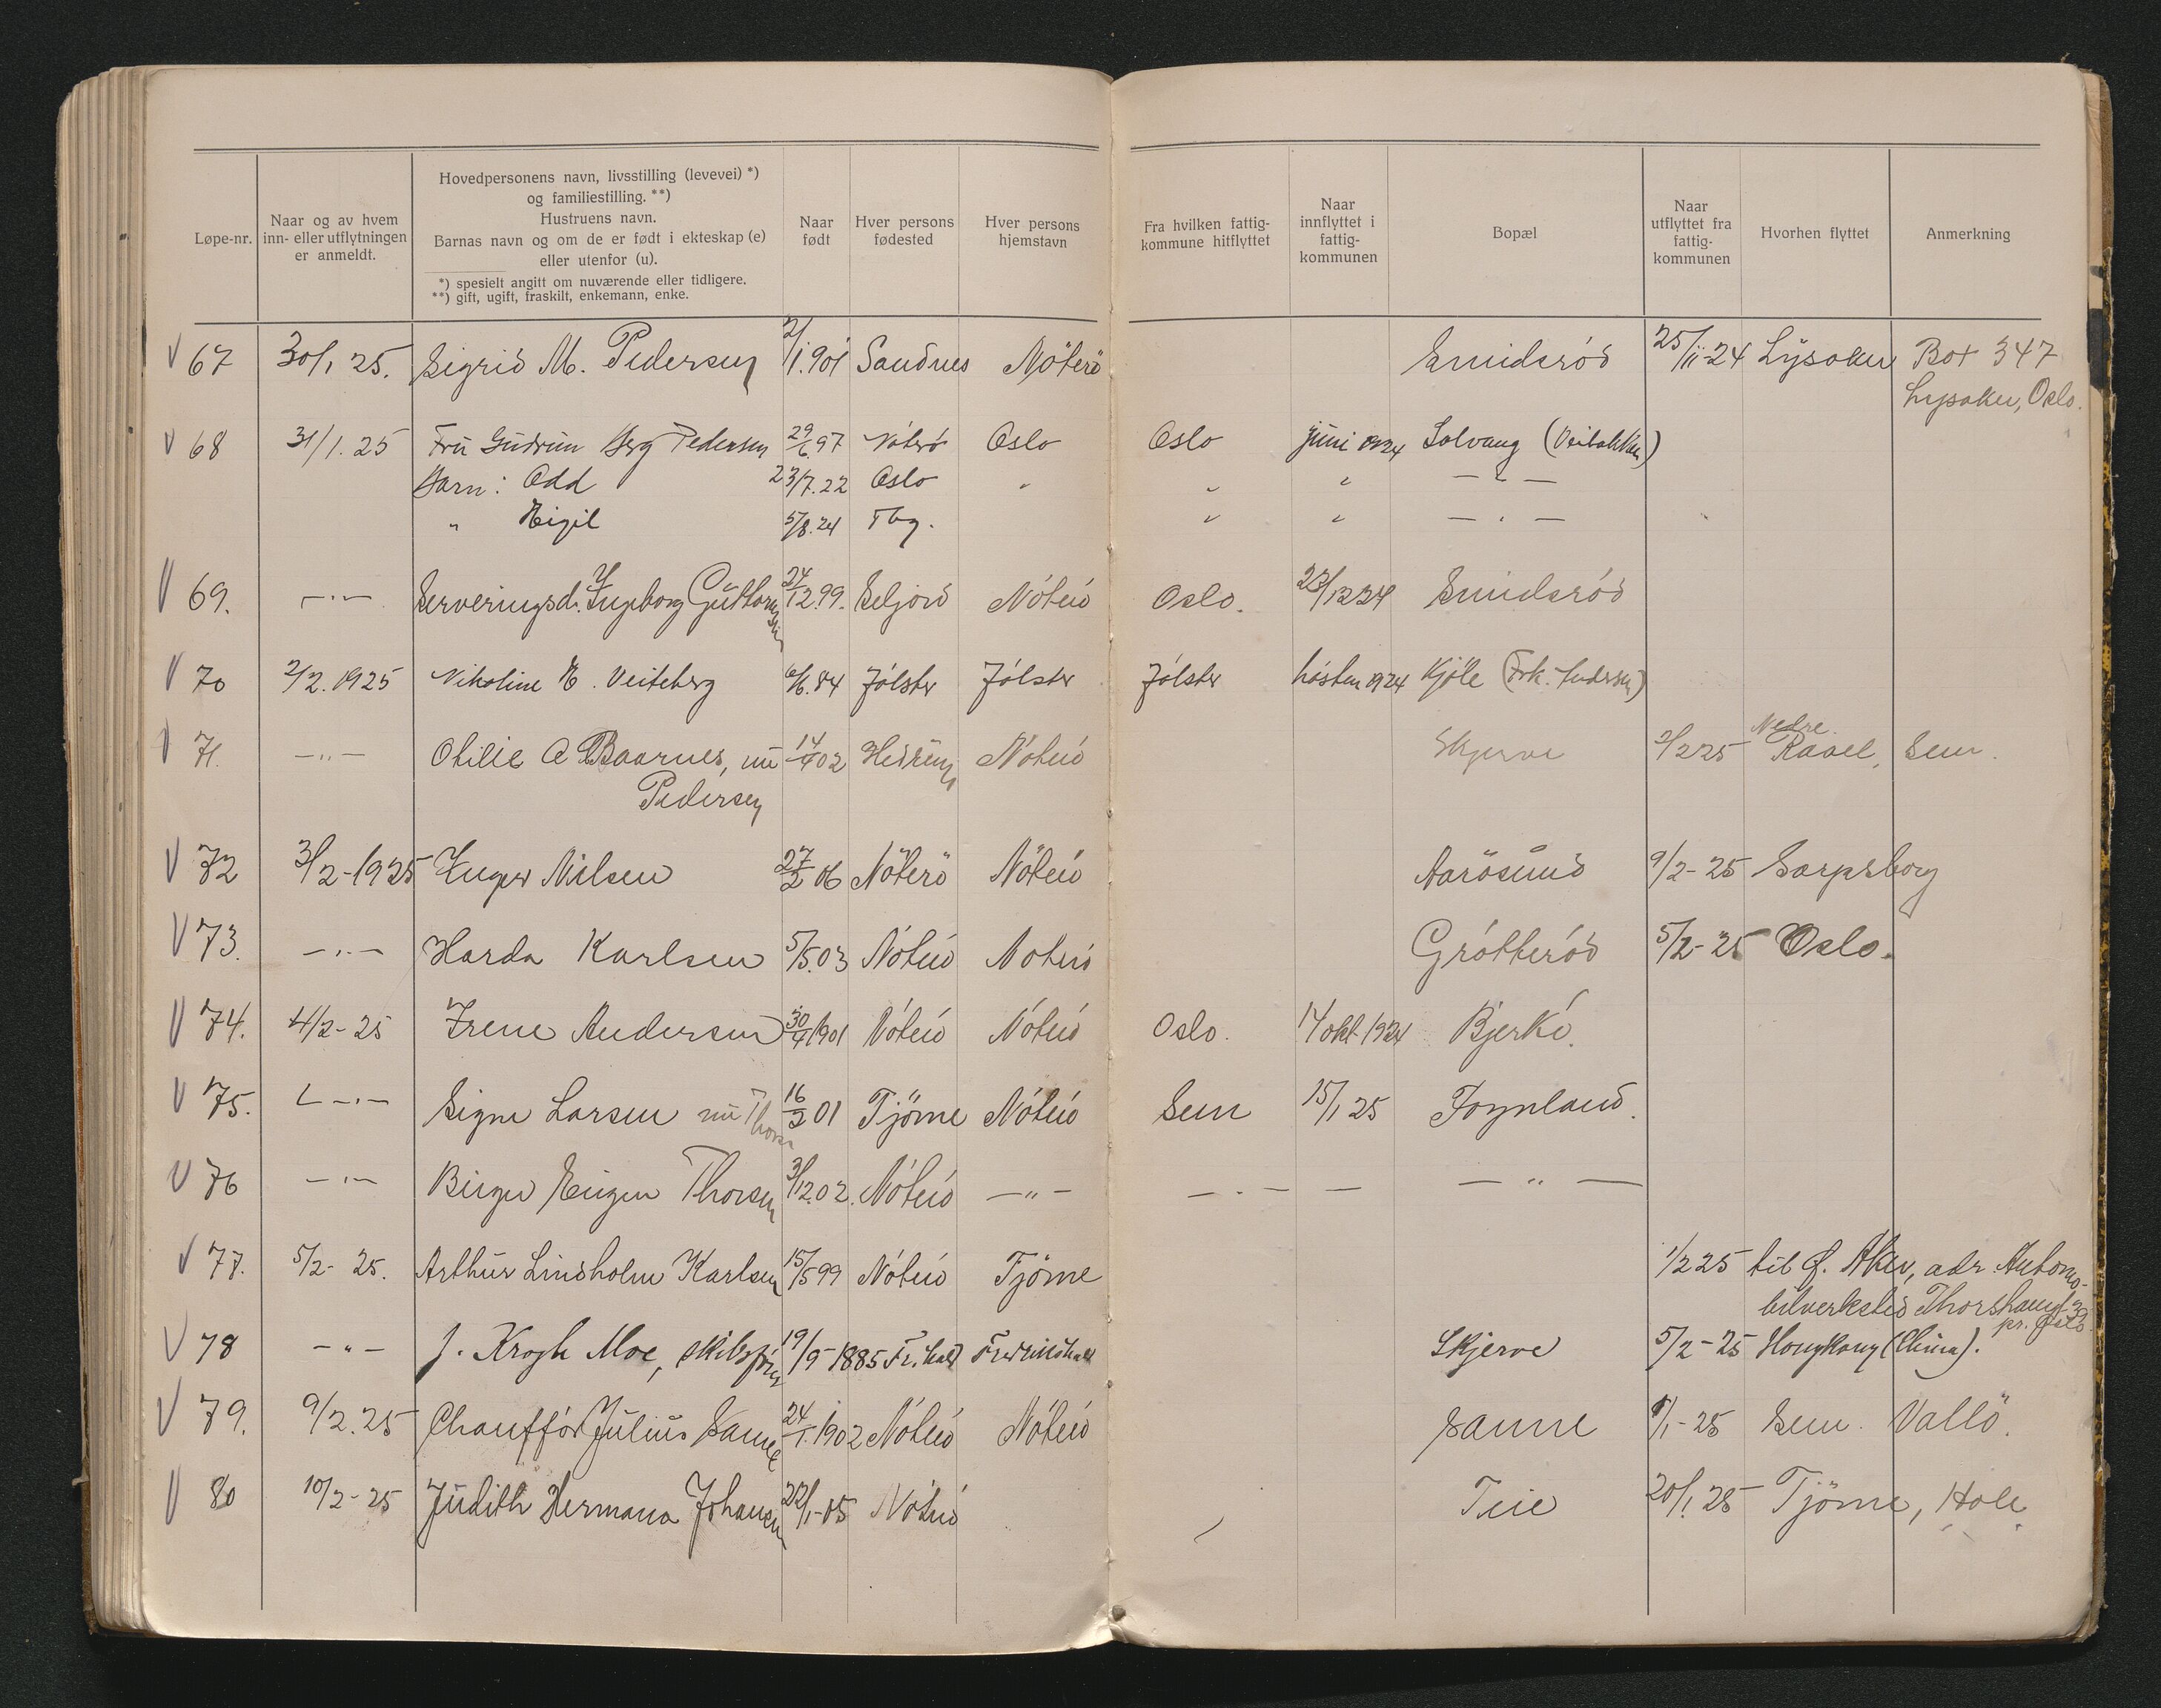 Løpe-nr.
Naar og av hvem
inn- eller utflytningen
er anmeldt.
Hovedpersonens navn, livsstilling (levevei) *)
og familiestilling. **)
Hustruens navn.
Barnas navn og om de er født i ekteskap (e)
eller utenfor (u).
*) spesielt angitt om nuværende eller tidligere.
**) gift, ugift, fraskilt, enkemann, enke.
Naar
født
Hver persons
fødested
Hver persons
hjemstavn
Fra hvilken fattig-
kommune hitflyttet
Naar
innflyttet i
fattig-
kommunen
Bopæl
Naar
utflyttet fra
fattig-
kommunen
Hvorhen flyttet
Anmerkning
V 67 30/1 25. Sigrid M. Pedersen 2/1.901 Sandnes Nöterö Smidsröd 25/11-24 Lysaker Box 347
Lysaker, Oslo.
V 68 31/1.25 Fru Gudrun Berg Pedersen 29/6.97 Nöterö Oslo Oslo juni 1924 Solvang
Barn: Odd 23/7.22 Oslo " " " — " —
" Eigil 5/8.24 Tbg. " " — " —
V 69. — " — Serveringsd. Ingeborg Guttormsen 24/12.99. Seljord Nöterö Oslo. 23/12 24 Smidsröd
V 70 2/2.1925 Nikoline E. Veiteberg 6/6.84 Jölster Jölster Jölster hösten 1924 Kjöle (Frk. Andersen)
V 71. — " — Otilie A Baarnes, nu 14/4 02 Hedrum Nöterö Skjerve 2/2 25 Nedre Ravel, Sem.
Pedersen
V 72 3/2-1925 Inger Nilsen 27/2 06 Nöterö Nöterö Aarösund 9/2-25 Sarpsborg
V 73. — " — Harda Karlsen 5/5.03 Nöterö Nöterö Grötteröd 5/2-25 Oslo.
V 74. 4/2-25 Irene Andersen 30/4 1901 Nöterö Nöterö Oslo. 14 okt 1924 Bjerkö.
V 75. — " — Signe Larsen nu Thorsen 16/2 01 Tjöme Nöterö Sem 15/1 25 Föynland.
V 76 — " — Birger Eugen Thorsen 3/12.02. Nöterö — " — — " — — — " —
V 77. 5/2- 25. Arthur Lindholm Karlsen 15/5 99 Nöterö Tjöme 1/2 25 til Ø. Aker, adr. Automo-
bilverksted Thorshaug
pr. Oslo.
V 78 — " — J. Krogh Moe, skibsförer 19/9-1885 Fr.hald Fredrikshald Skjerve 5/2-25 Hongkong (China).
V 79. 9/2.25 Chafför Julius Sanne 24/1.1902 Nöterö Nöterö Sanne /1-25 Sem. Vallö.
V 80 10/2-25 Judith Hermana Johansen 22/1-05 Nöterö Teie 20/1.25 Tjöme, Hole